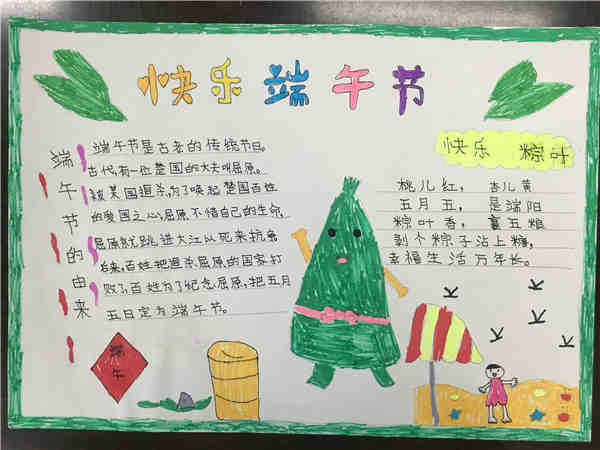 快乐端午节
端午节的由来
端午节是古老的传统节日。
古代,有一位楚国的大夫叫屈原。
被某国追杀,为了唤起楚国百姓
的爱国之心,屈原不惜自己的生命
屈原就跳进大江以死来抗争
后来,百姓把追杀屈原的国家打
败了,百姓为了纪念屈原,把五月
五日定为端午节。
快乐 粽叶
桃儿红, 杏儿黄
五月五, 是端阳
粽叶香, 裹五粮
剥个粽子沾上糖,
幸福生活万年长。